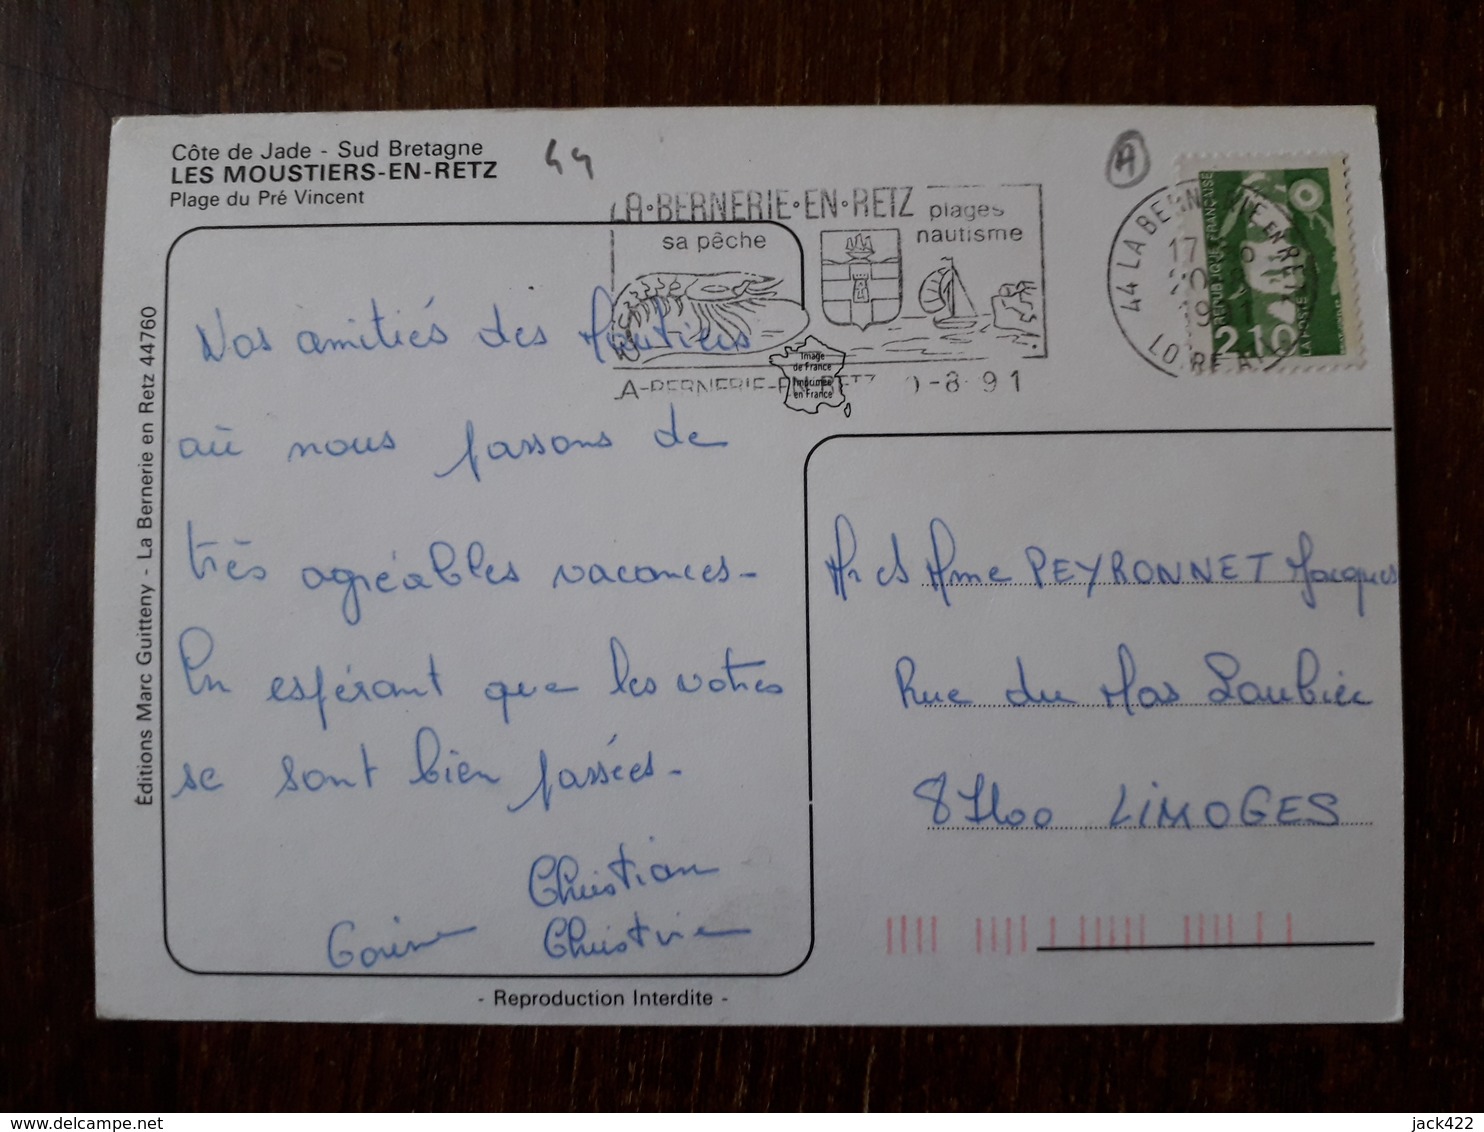 Côte de Jade - Sud Bretagne
LES MOUSTIERS-EN-RETZ
Plage du Pré Vincent
44
A
LA·BERNERIE·EN·RETZ
plages
nautisme
sa pêche
A-BERNERIE-EN-RETZ 0-8-91
44 LA BERNERIE EN RETZ
LOIRE AT
17
19 1
REPUBLIQUE FRANCAISE
2,10
LA POSTE
Image
de France
Imprimée
en France
Éditions Marc Guitteny - La Bernerie en Retz 44760
Nos amitiés des Moutiers
où nous passons de
très agréables vacances-
En espérant que les votres
se sont bien passées-
Christian
Corinne Christine
Mr et Mme PEYRONNET Jacques
Rue du Mas Loubier
87100 LIMOGES
- Reproduction Interdite -
delcampe.net
jack422